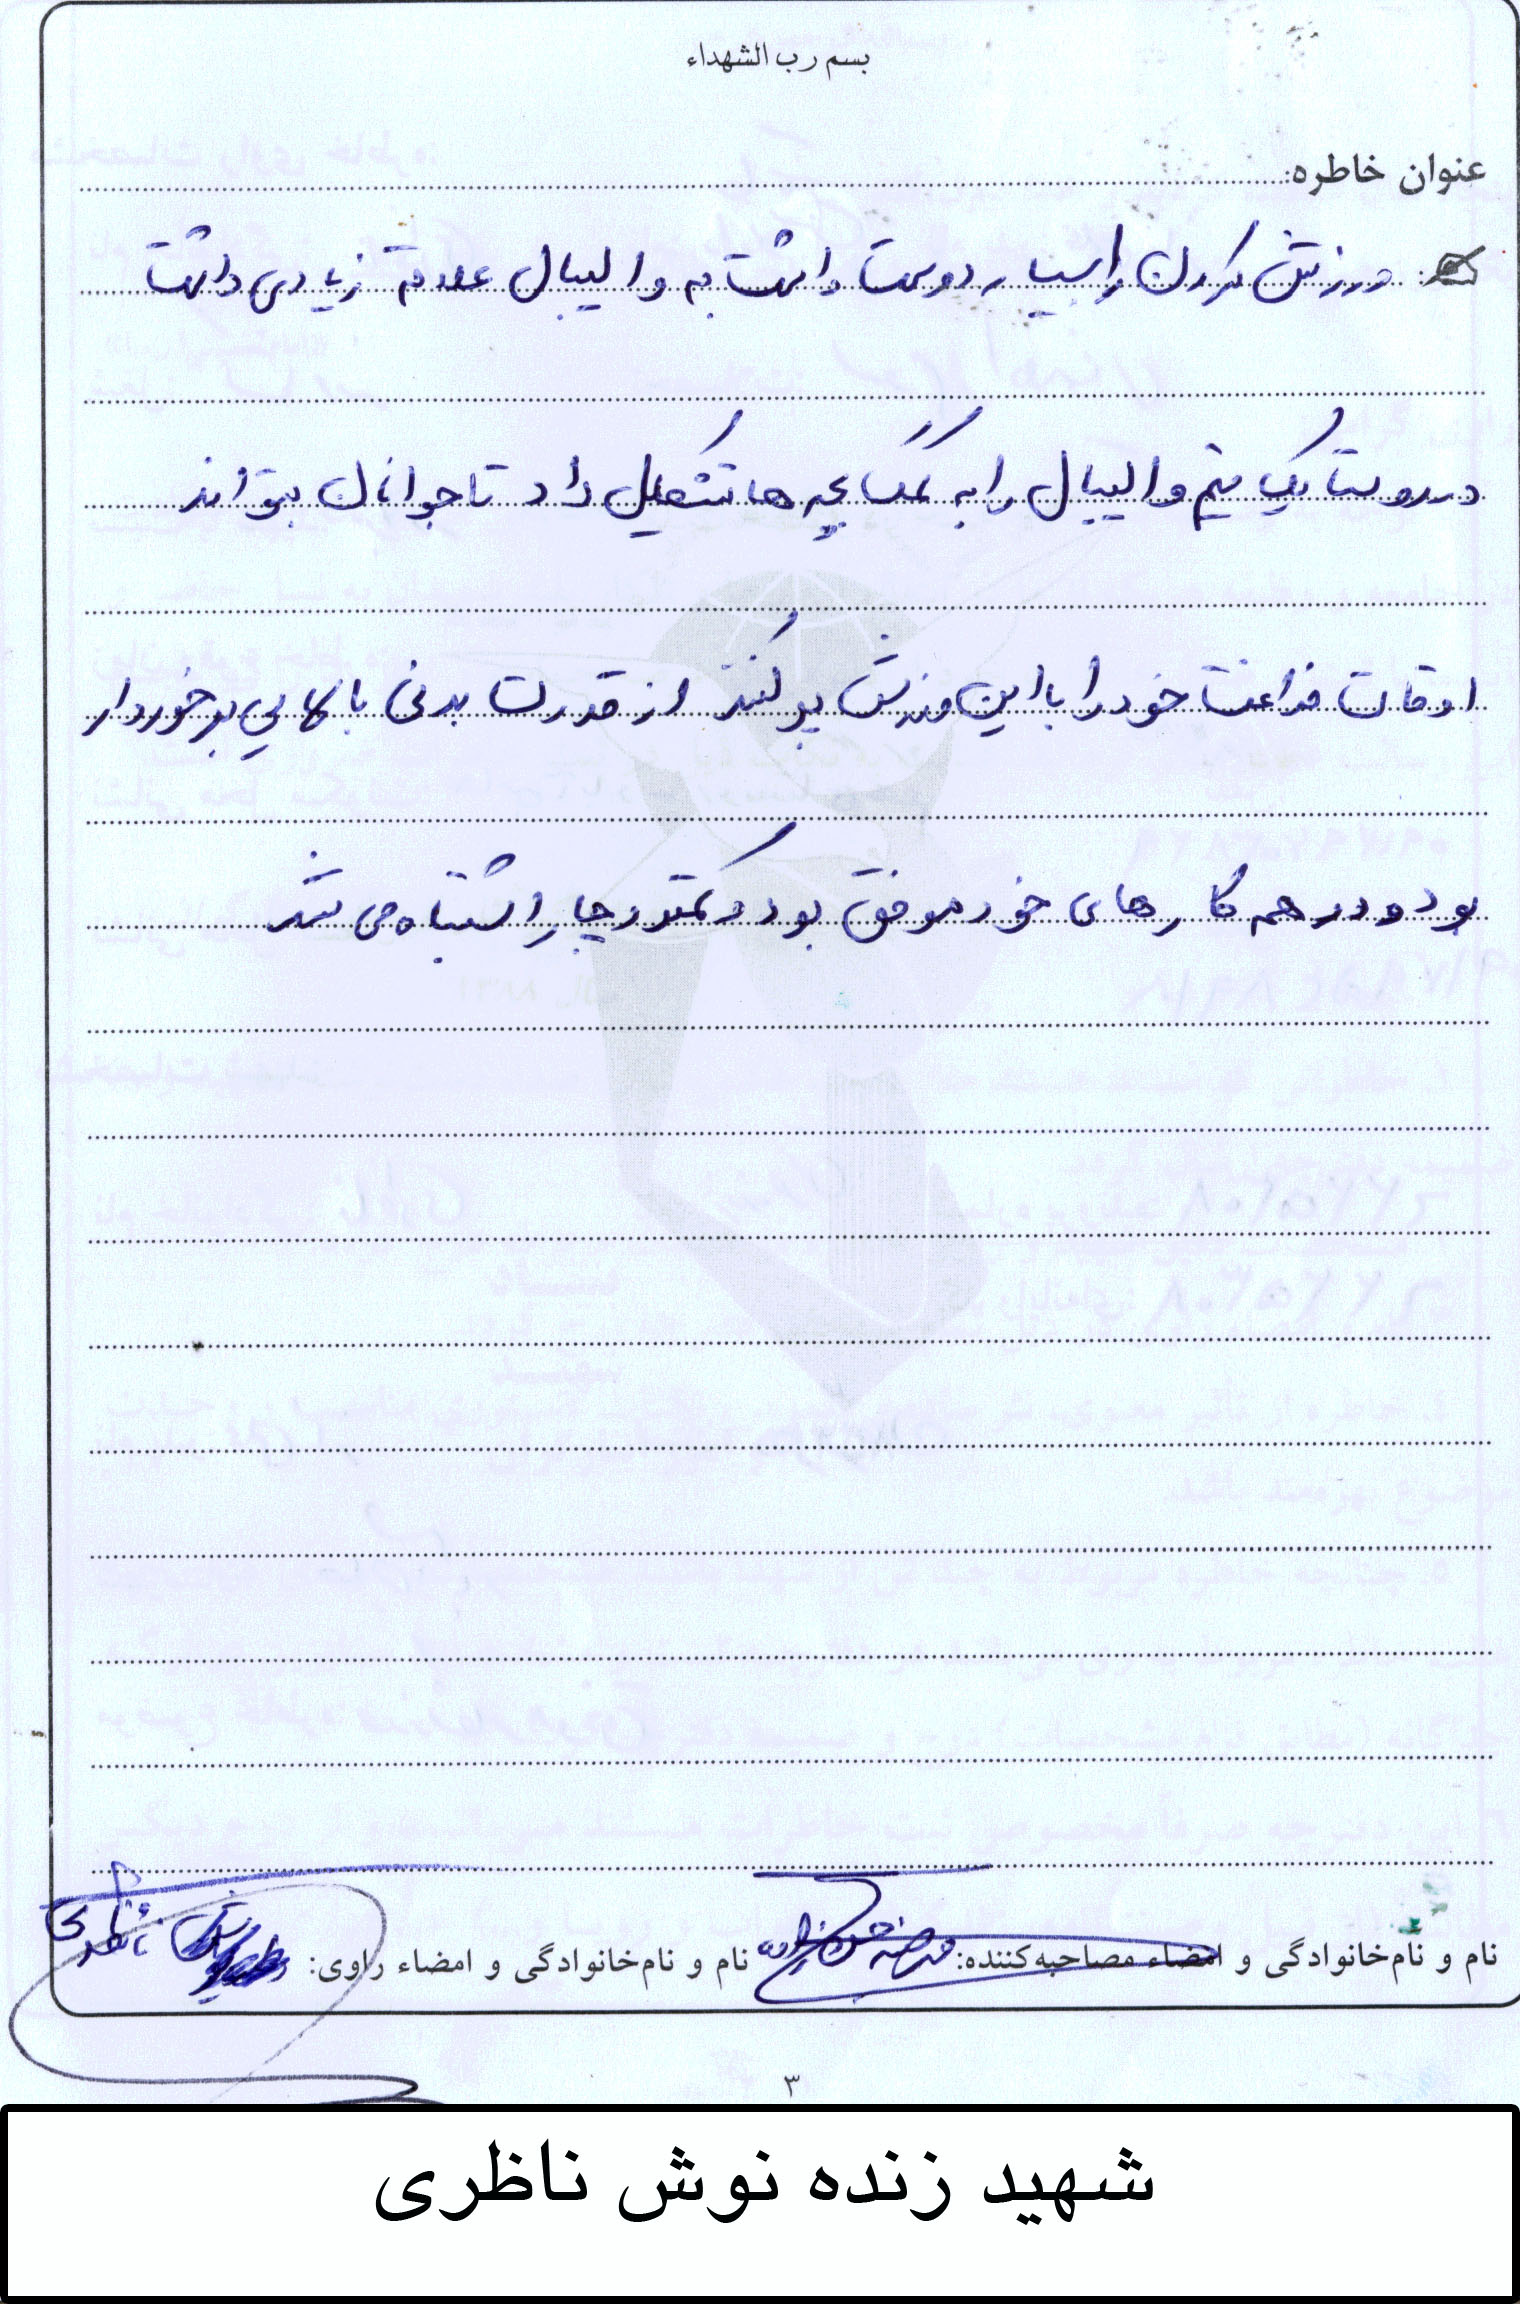 بسم رب الشهداء
عنوان خاطره:
ورزش کردن را بسیار دوست داشت به والیبال علاقه زیادی داشت
در روستا یک تیم والیبال را به کمک بچه ها تشکیل داد تا جوانان بتوانند
اوقات فراغت خود را با این ورزش پر کنند از قدرت بدنی بالایی برخوردار
بود و در هم کارهای خود موفق بود و کمتر دچار اشتباه می شد
نام و نام‌خانوادگی و امضاء مصاحبه‌کننده: مرضیه نام و نام‌خانوادگی و امضاء راوی: ناظری
۳
شهید زنده نوش ناظری